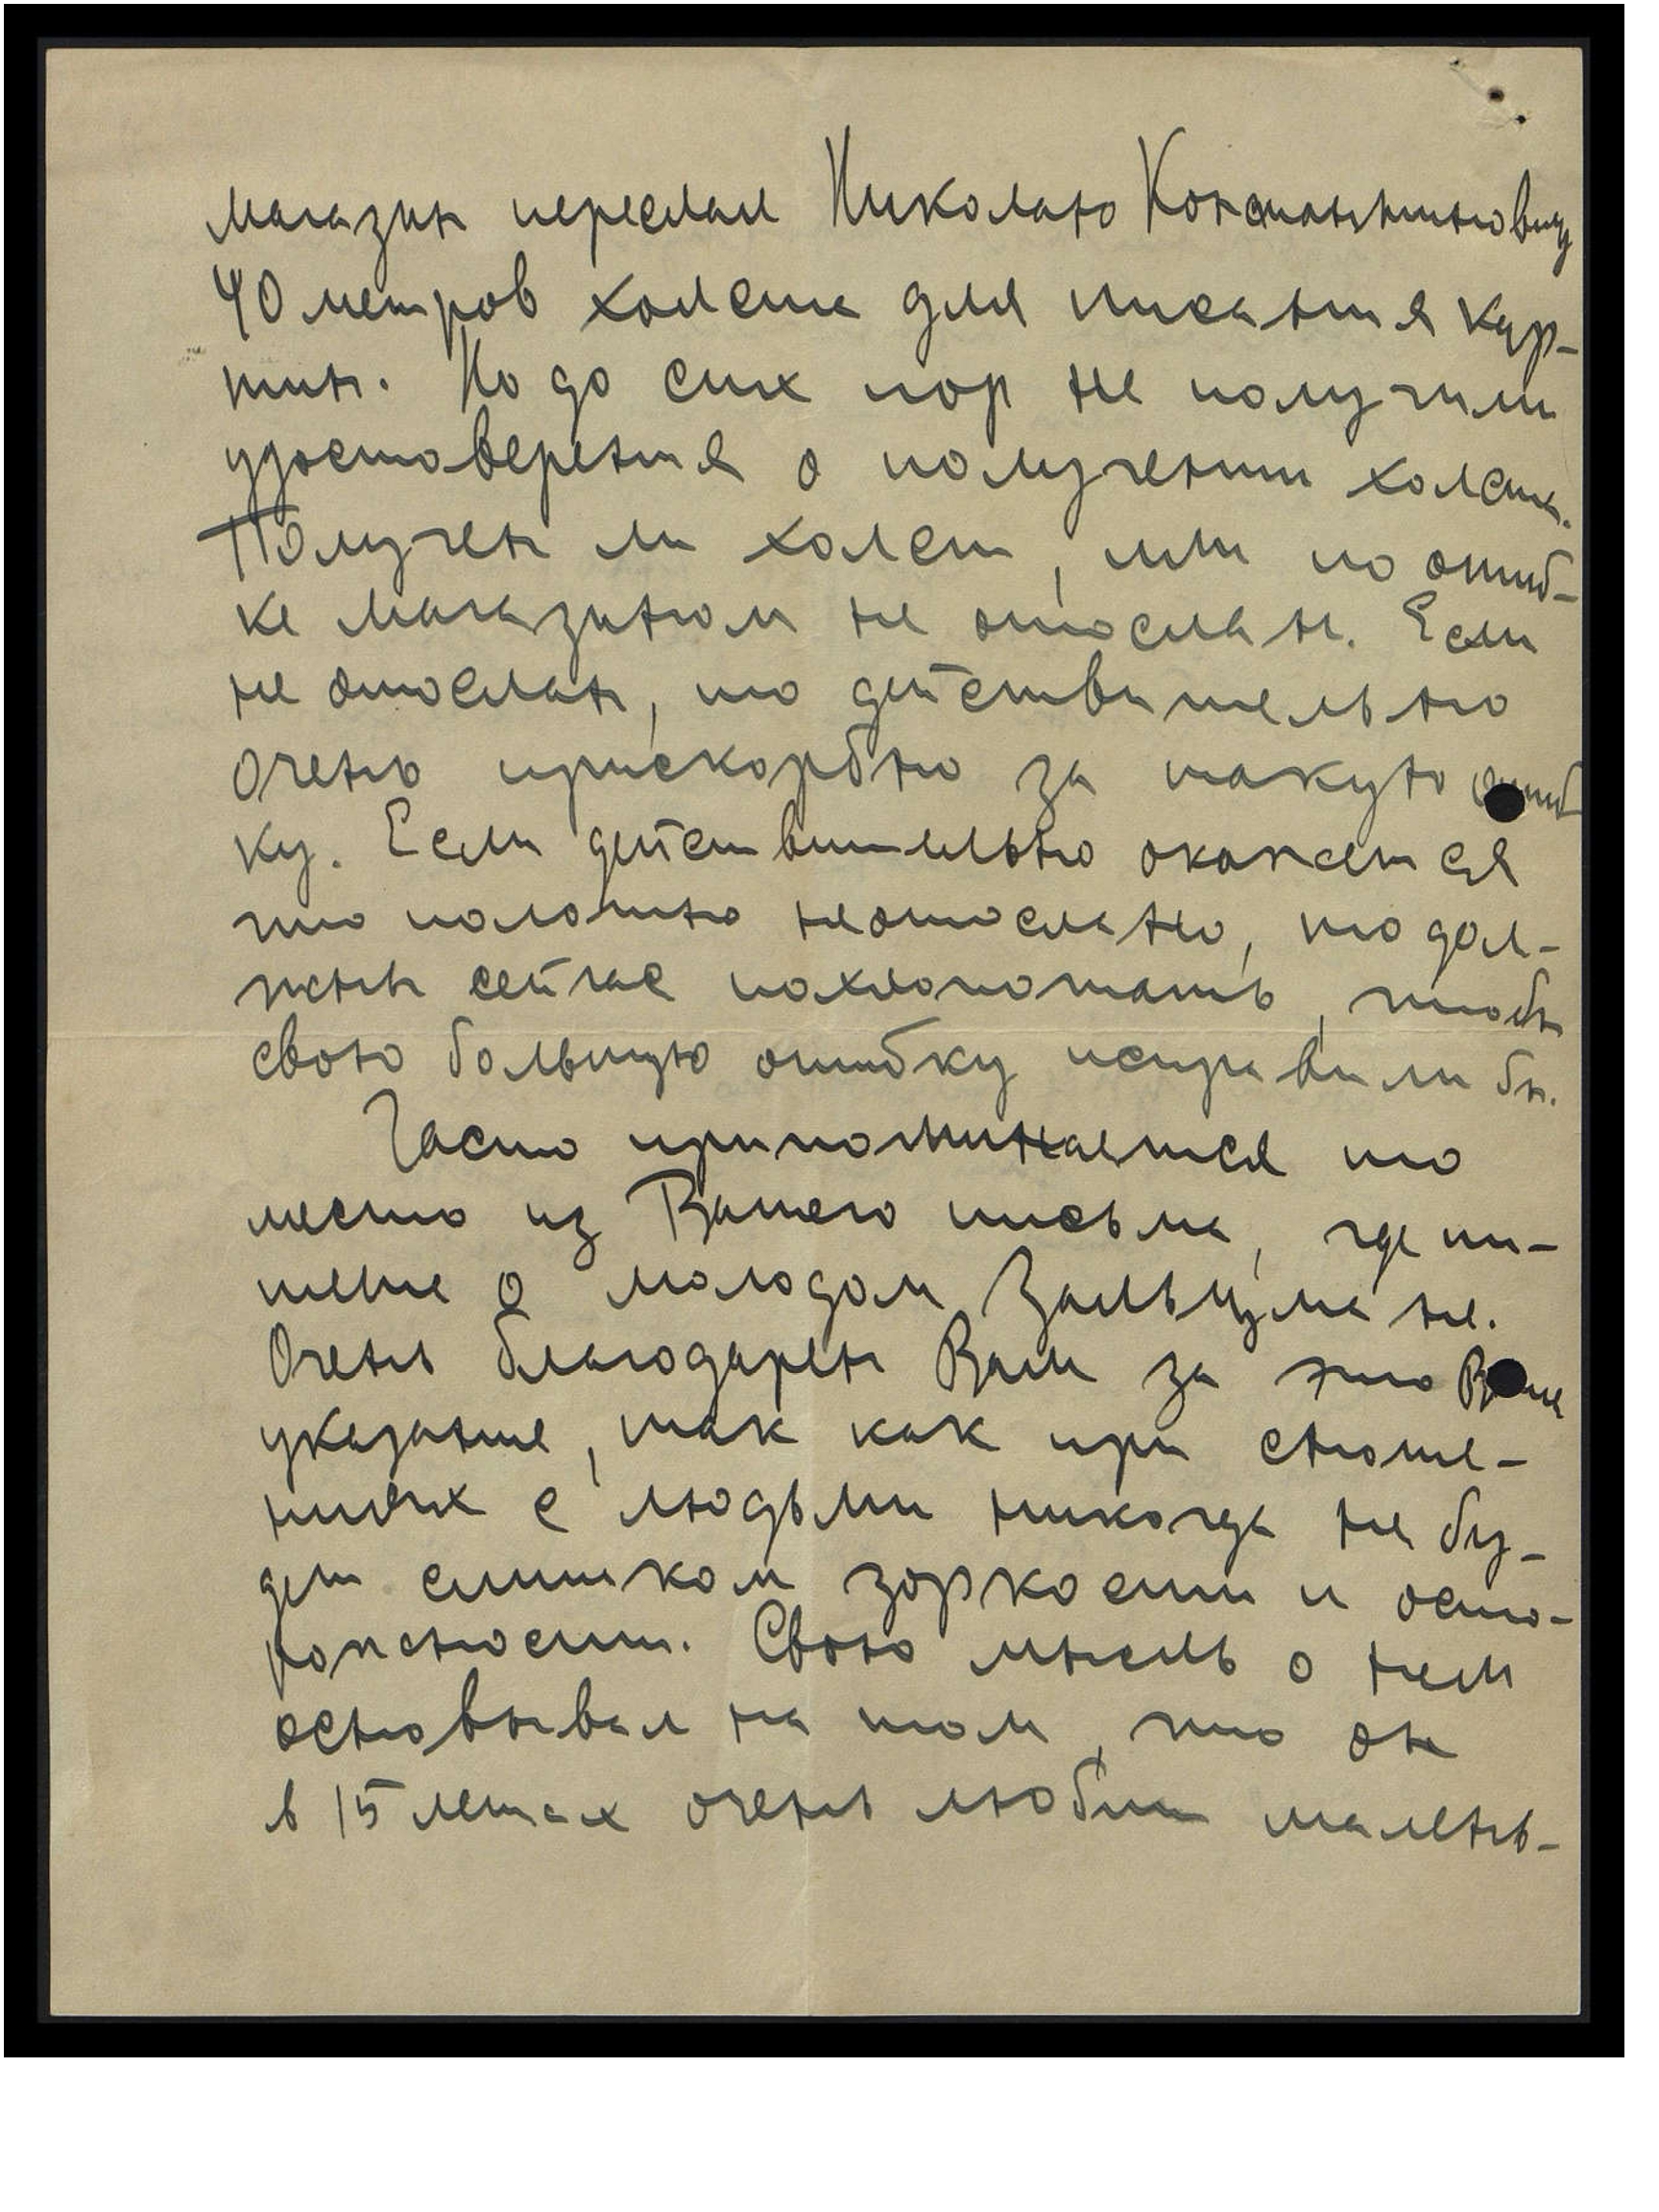 магазин переслал Николаю Константиновичу
40 метров холста для писания кар-
тин. Но до сих пор не получили
удостоверения о получении холста.
Получен ли холст, или по ошиб-
ке магазином не отослан. Если
не отослан, то действительно
очень прискорбно за такую ошиб
ку. Если действительно окажется
что полотно неотослано, то дол-
жны сейчас похлопотать, чтобы
свою большую ошибку исправили бы.
Часто припоминается то
место из Вашего письма, где пи-
шете о молодом Зальцмане.
Очень благодарен Вам за это Ваше
указание, так как при сноше-
ниях с людьми никогда не бу-
дет слишком зоркости и осто-
рожности. Свою мысль о нем
основывал на том, что он
в 15 летах очень любит малень-